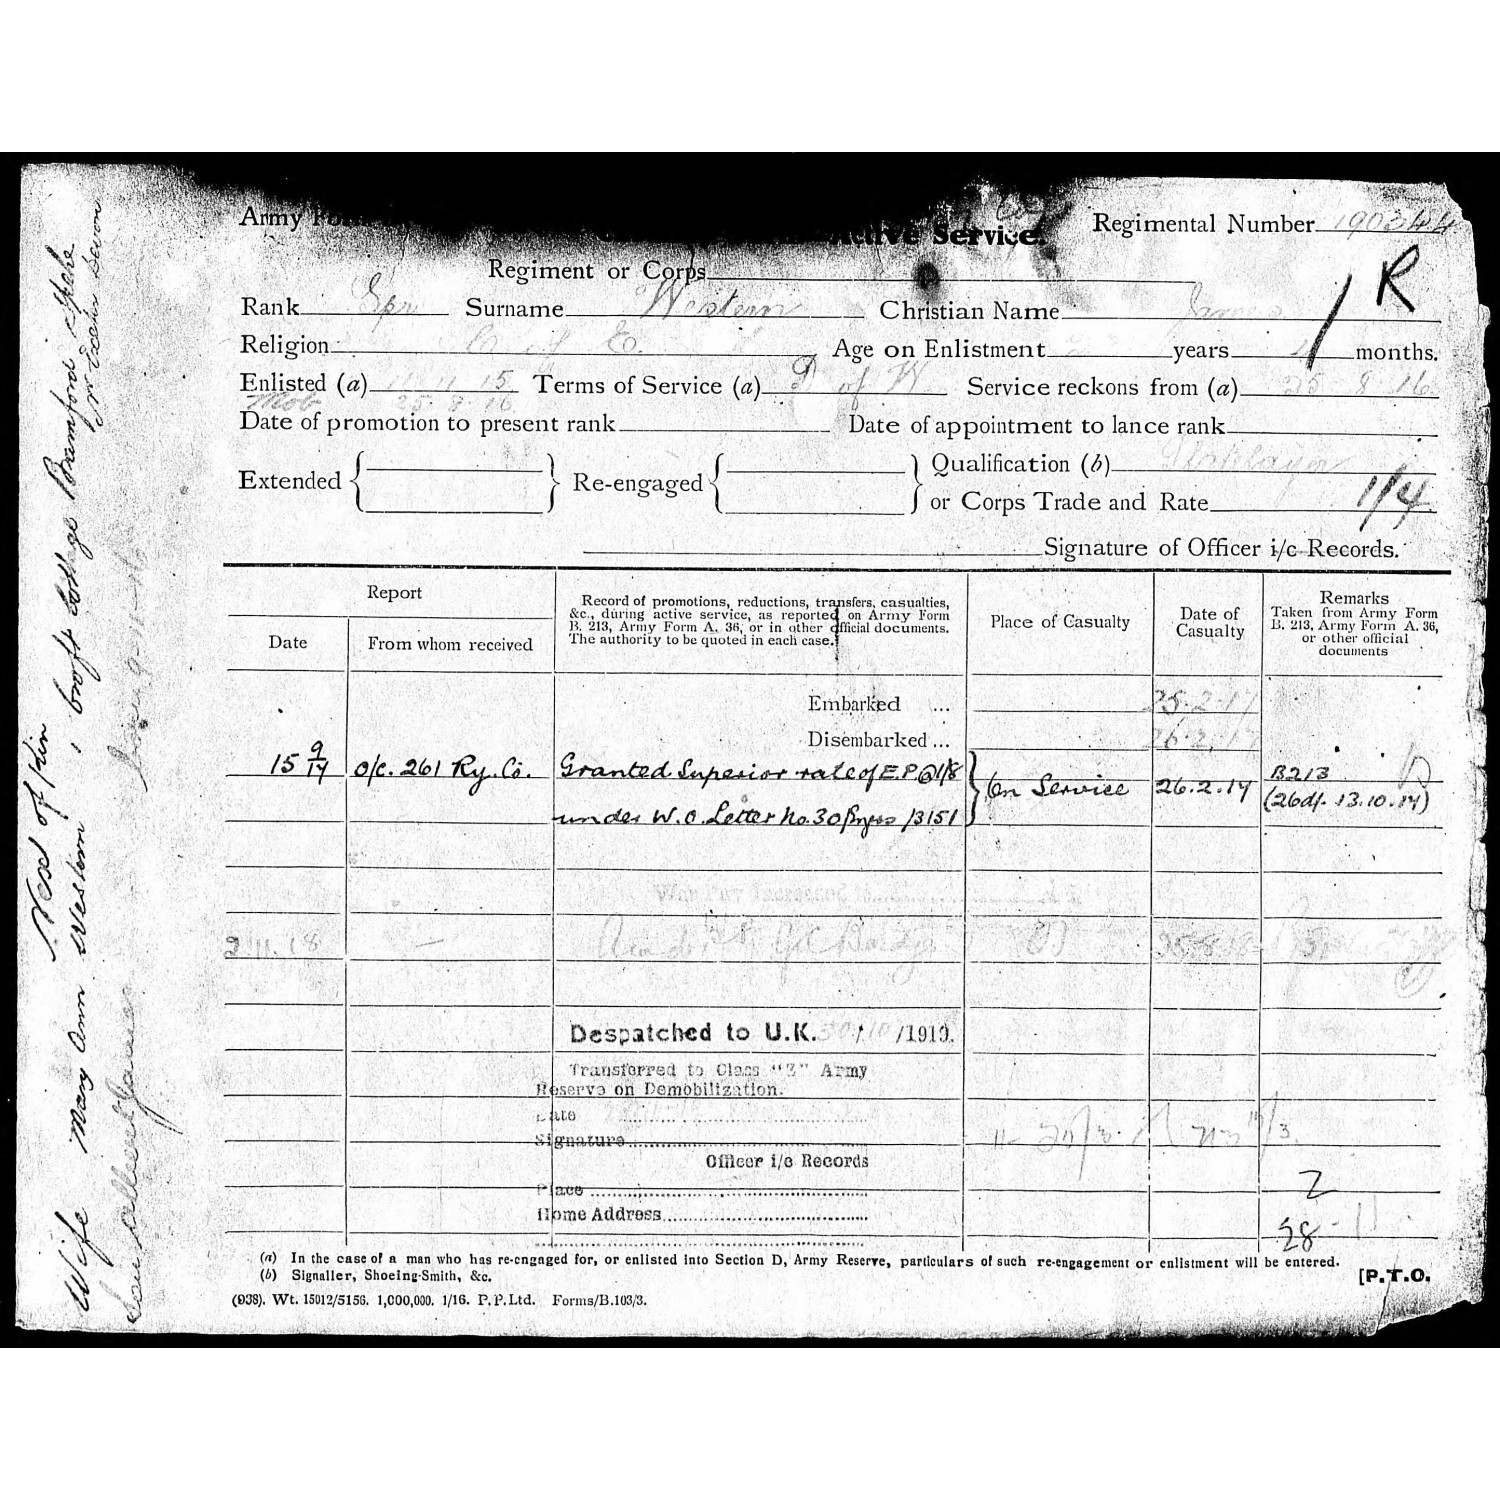 Army
Active Service.
Regimental Number 190344
Regiment or Corps
R
Rank Spr Surname Western Christian Name James
Religion C of E. Age on Enlistment years months.
Enlisted (a) 11.11.15 Terms of Service (a) D of W Service reckons from (a) 25 8 16
Mob 25.8.16
Date of promotion to present rank Date of appointment to lance rank
Extended Re-engaged Qualification (b) Platelayer
or Corps Trade and Rate 1/4
Signature of Officer i/c Records.
Report
Date
From whom received
Record of promotions, reductions, transfers, casualties,
&c., during active service, as reported on Army Form
B. 213, Army Form A. 36, or in other official documents.
The authority to be quoted in each case.
Place of Casualty
Date of
Casualty
Remarks
Taken from Army Form
B. 213, Army Form A. 36,
or other official
documents
Embarked ... 25.2.17
Disembarked ... 26.2.17
15 9/17 O/C. 261 Ry. Co. Granted Superior rate of E.P. @ 1/8 On Service 26.2.17 B213
under W.O. Letter No. 30 /3151 (26 d/- 13.10.17)
War Pay Increased to
2.11.18
Despatched to U.K. 30/10/1919.
Transferred to Class "Z" Army
Reserve on Demobilization.
Date
Signature
Officer i/c Records
Place
Home Address
Z
28 - 11
(a) In the case of a man who has re-engaged for, or enlisted into Section D, Army Reserve, particulars of such re-engagement or enlistment will be entered.
(b) Signaller, Shoeing-Smith, &c.
[P.T.O.
(938). Wt. 15012/5156. 1,000,000. 1/16. P.P.Ltd. Forms/B.103/3.
Next of Kin
Wife Mary Ann Western, 1 Croft Cottage Bramford Speke
Nr Exeter Devon
Son Albert James